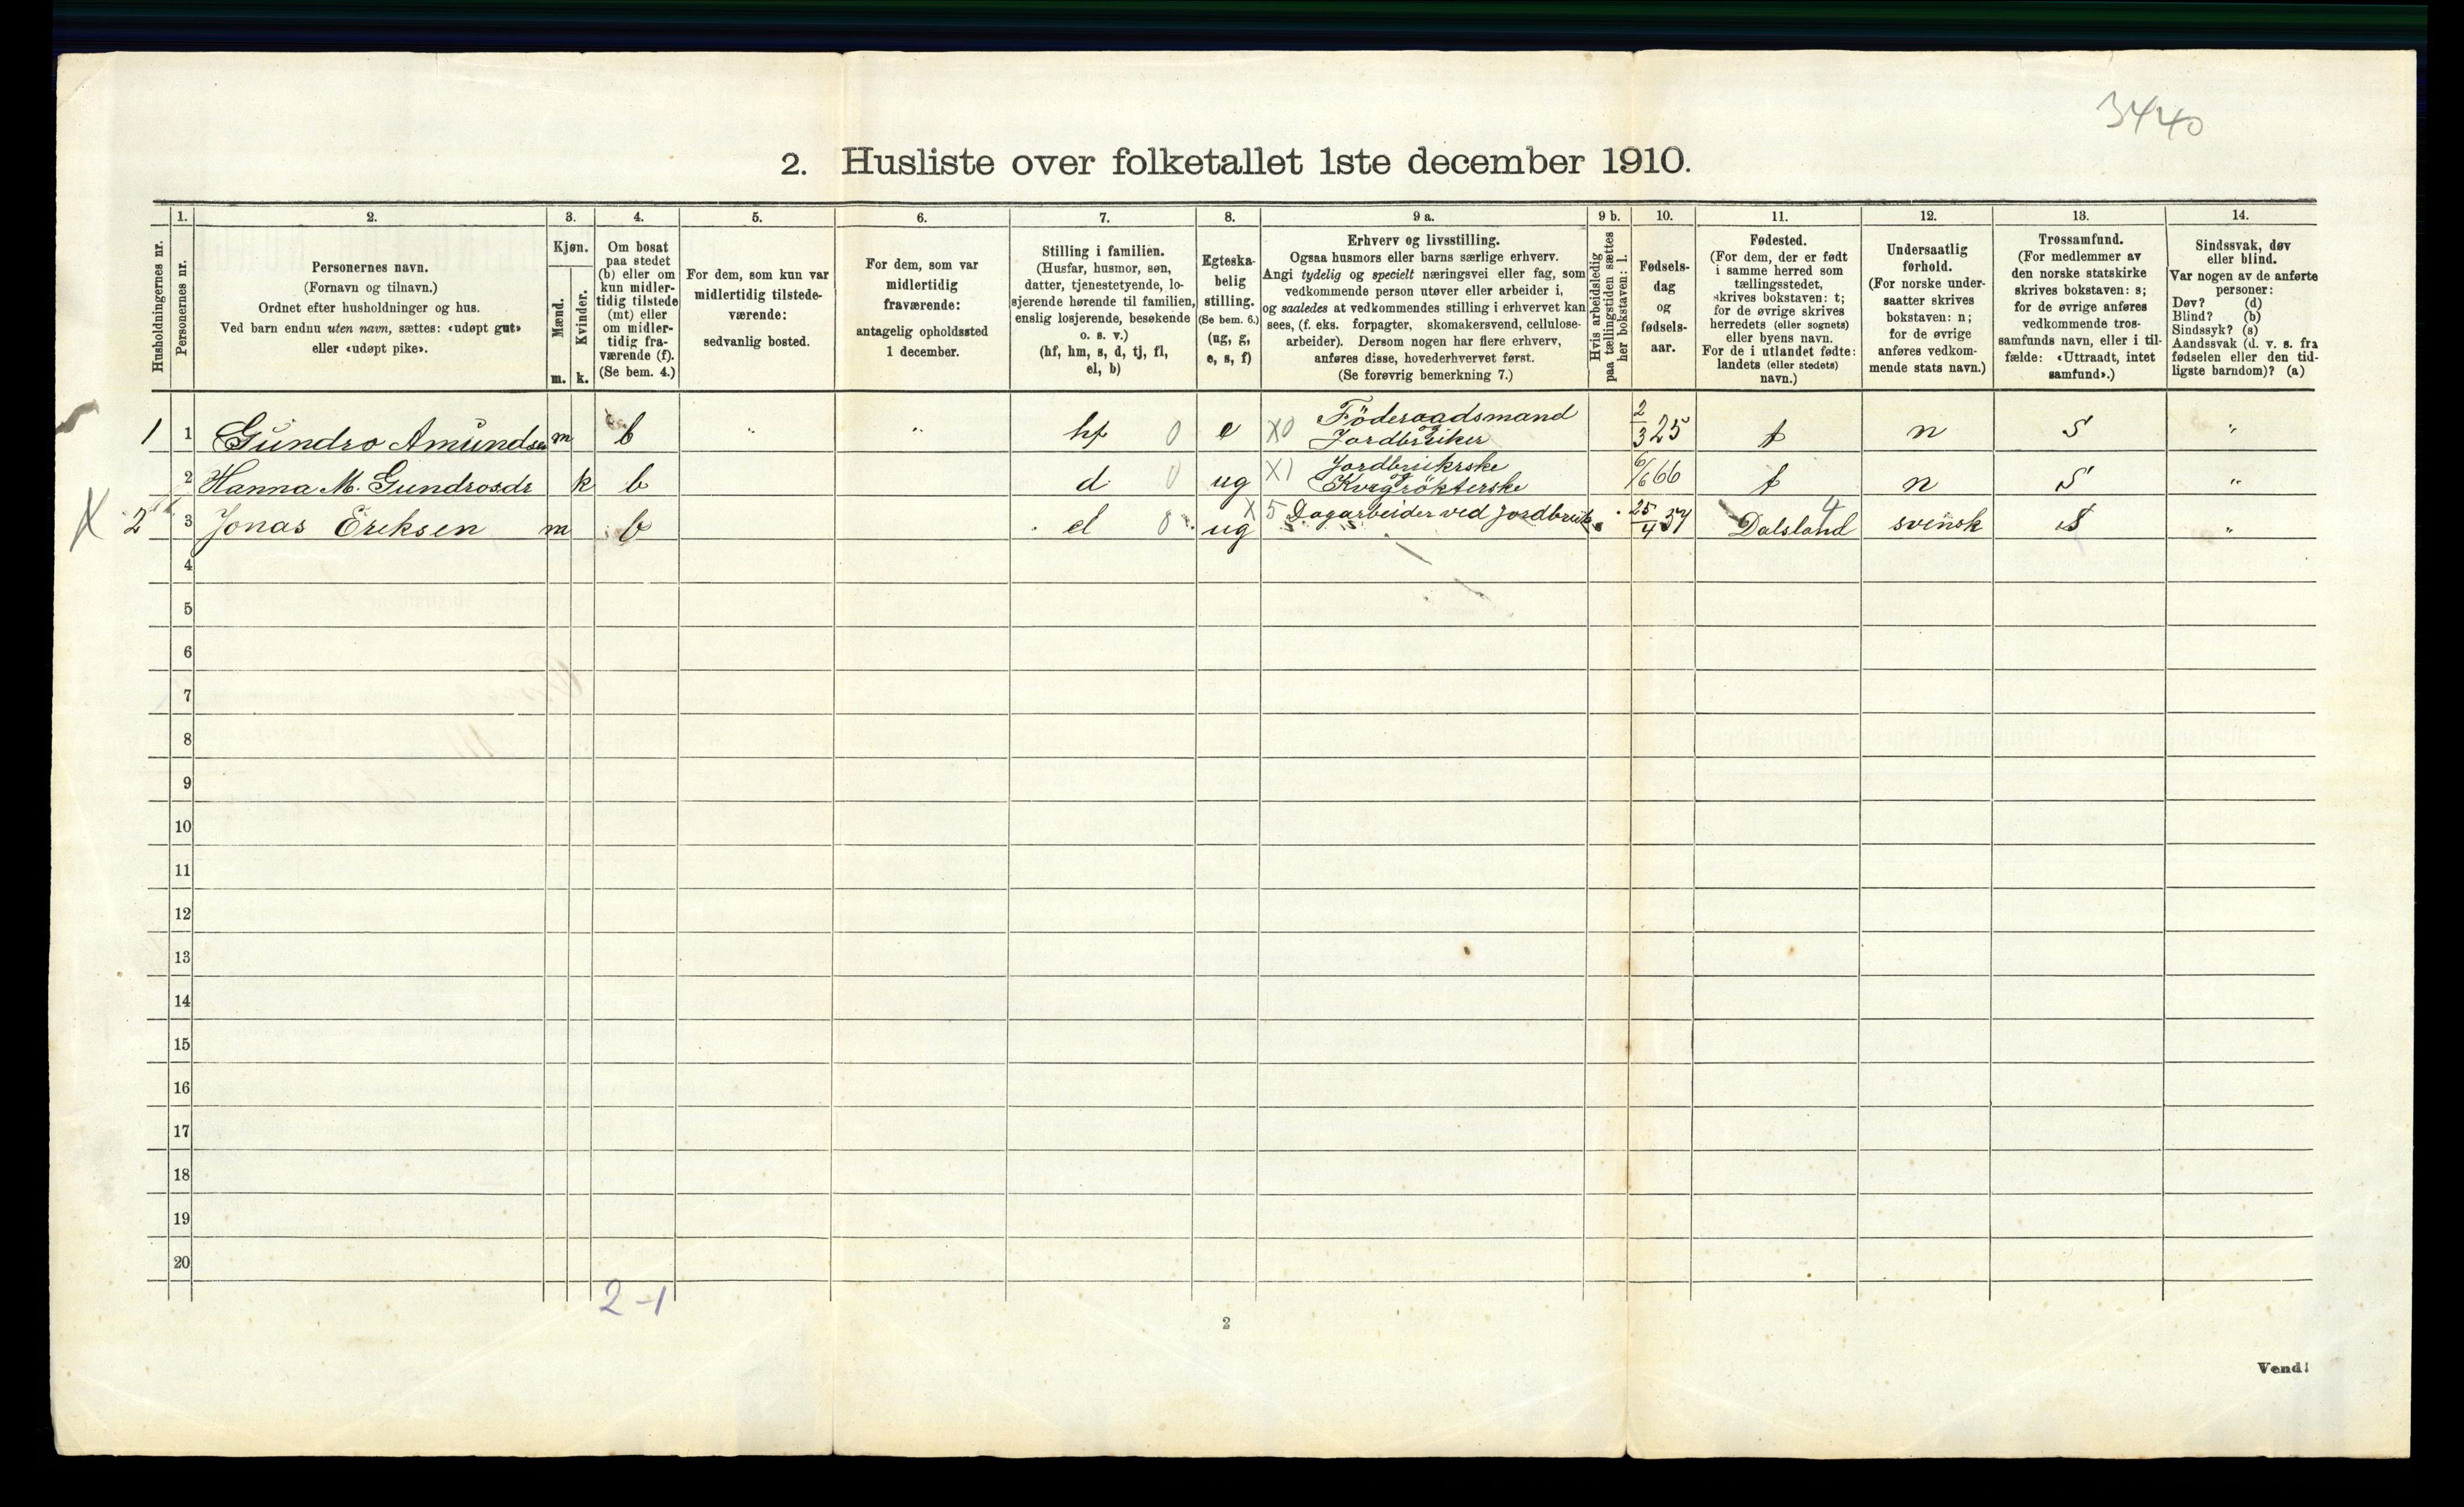 3440
2. Husliste over folketallet 1ste december 1910.
1. 2. 3. 4. 5. 6. 7. 8. 9 a. 9 b. 10. 11. 12. 13. 14.
Husholdningernes nr.
Personernes nr.
Personernes navn.
(Fornavn og tilnavn.)
Ordnet efter husholdninger og hus.
Ved barn endnu uten navn, sættes: «udøpt gut»
eller «udøpt pike».
Kjøn.
Mænd.
Kvinder.
m. k.
Om bosat
paa stedet
(b) eller om
kun midler-
tidig tilstede
(mt) eller
om midler-
tidig fra-
værende (f).
(Se bem. 4.)
For dem, som kun var
midlertidig tilstede-
værende:
sedvanlig bosted.
For dem, som var
midlertidig
fraværende:
antagelig opholdssted
1 december.
Stilling i familien.
(Husfar, husmor, søn,
datter, tjenestetyende, lo-
sjerende hørende til familien,
enslig losjerende, besøkende
o. s. v.)
(hf, hm, s, d, tj, fl,
el, b)
Egteska-
belig
stilling.
(Se bem. 6.)
(ug, g,
e, s, f)
Erhverv og livsstilling.
Ogsaa husmors eller barns særlige erhverv.
Angi tydelig og specielt næringsvei eller fag, som
vedkommende person utøver eller arbeider i,
og saaledes at vedkommendes stilling i erhvervet kan
sees, (f. eks. forpagter, skomakersvend, cellulose-
arbeider). Dersom nogen har flere erhverv,
anføres disse, hovederhvervet først.
(Se forøvrig bemerkning 7.)
Hvis arbeidsledig
paa tællingstiden sættes
her bokstaven: l.
Fødsels-
dag
og
fødsels-
aar.
Fødested.
(For dem, der er født
i samme herred som
tællingsstedet,
skrives bokstaven: t;
for de øvrige skrives
herredets (eller sognets)
eller byens navn.
For de i utlandet fødte:
landets (eller stedets)
navn.)
Undersaatlig
forhold.
(For norske under-
saatter skrives
bokstaven: n;
for de øvrige
anføres vedkom-
mende stats navn.)
Trossamfund.
(For medlemmer av
den norske statskirke
skrives bokstaven: s;
for de øvrige anføres
vedkommende tros-
samfunds navn, eller i til-
fælde: «Uttraadt, intet
samfund».)
Sindssvak, døv
eller blind.
Var nogen av de anførte
personer:
Døv? (d)
Blind? (b)
Sindssyk? (s)
Aandssvak (d. v. s. fra
fødselen eller den tid-
ligste barndom)? (a)
1 1 Gundro Amundsen m b " " hf 0 e X0 Föderaadsmand og Jordbruker 2/3 25 t n S "
2 Hanna M. Gundrosdr k b d 0 ug X1 Jordbrukrske og Kvegrökterske 6/6 66 t n S "
X 2 3 Jonas Eriksen m b el 0 ug X5 Dagarbeider ved jordbruk 25/4 57 Dalsland 4 svensk S "
4
5
6
7
8
9
10
11
12
13
14
15
16
17
18
19
20
2-1
2
Vend!